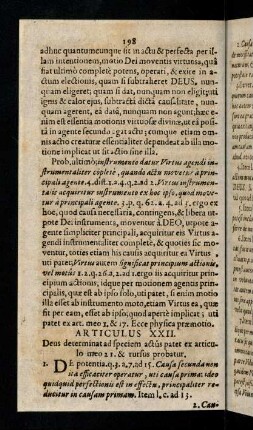 198
adhuc quantumcunque sit in actu & perfecta per il-
lam intentionem, motio Dei moventis virtuosa, quâ
fiat ultimò completè potens, operati, & exire in a-
ctum electionis; quam si subtraheret DEUS, nun-
quam eligeret; quam si dat, nunquam non eligit; uti
ignis & calor ejus, subtractâ dictâ causalitate, nun-
quam ageret, eâ datâ, nunquam non agunt; hæc e-
nim est essentia motionis virtuosæ divinæ, ut eâ posi-
tâ in agente secundo agat actu; cumque etiam om-
nis actio creaturæ essentialiter dependeat ab illa mo-
tione implicat ut sit actio sine illa.
Prob. ultimò; instrumento datur Virtus agendi in-
strumentaliter cōpletè, quando actu movetur à prin-
cipali agente 4. dist. 1. q. 1. q. 2. ad 2. Virtus instrumen-
taria acquiritur instrumento ex hoc ipso, quod move-
tur à principali agente. 3. p. q. 62. a. 4. ad 3. ergo ex
hoc, quod causa necessaria, contingens, & libera ut-
pote Dei instrumenta, moventur à DEO, utpote a-
gente simpliciter principali, acquiritur eis Virtus a-
gendi instrumentaliter completè, & quoties sic mo-
ventur, toties etiam his causis acquiritur ea Virtus
uti patet; Virtus autem significat principium actionis,
vel motûs 1. 2. q. 26. a. 2. ad 1. ergo iis acquiritur prin-
cipium actionis; idque per motionem agentis princi-
palis, quæ est ab ipso solo, uti patet, si enim motio
illa esset ab instrumento moto, etiam Virtus ea, quæ
fit per eam, esset ab ipso; quod apertè implicat; uti
patet ex art. meo 1. & 17. Ecce physica præmotio.
ARTICULUS XXII.
Deus determinat ad speciem actûs patet ex articu-
lo meo 21. & rursus probatur.
1. DE potentia. q. 3. a. 7. ad 15. Causa secunda non
ita efficaciter operatur, uti causa prima: ideo
quidquid perfectionis est in effectu, principaliter re-
ducitur in causam primam. Item l. c. ad 13.
2. Cau-